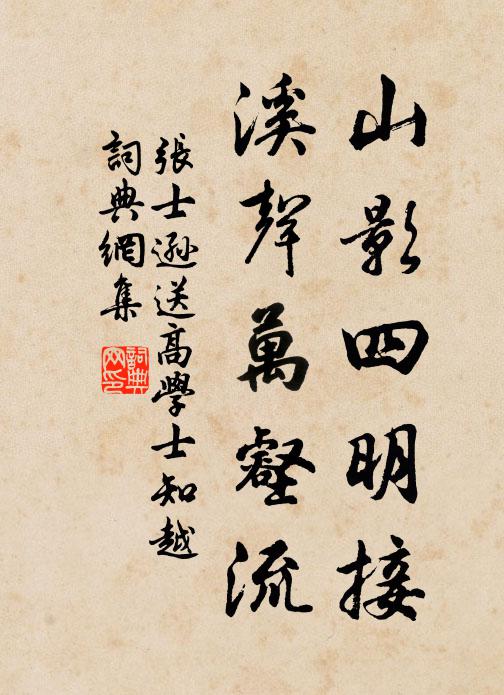 山影四明接
溪聲萬壑流
張士遜送高學士知越
詞典網集
詞典網印